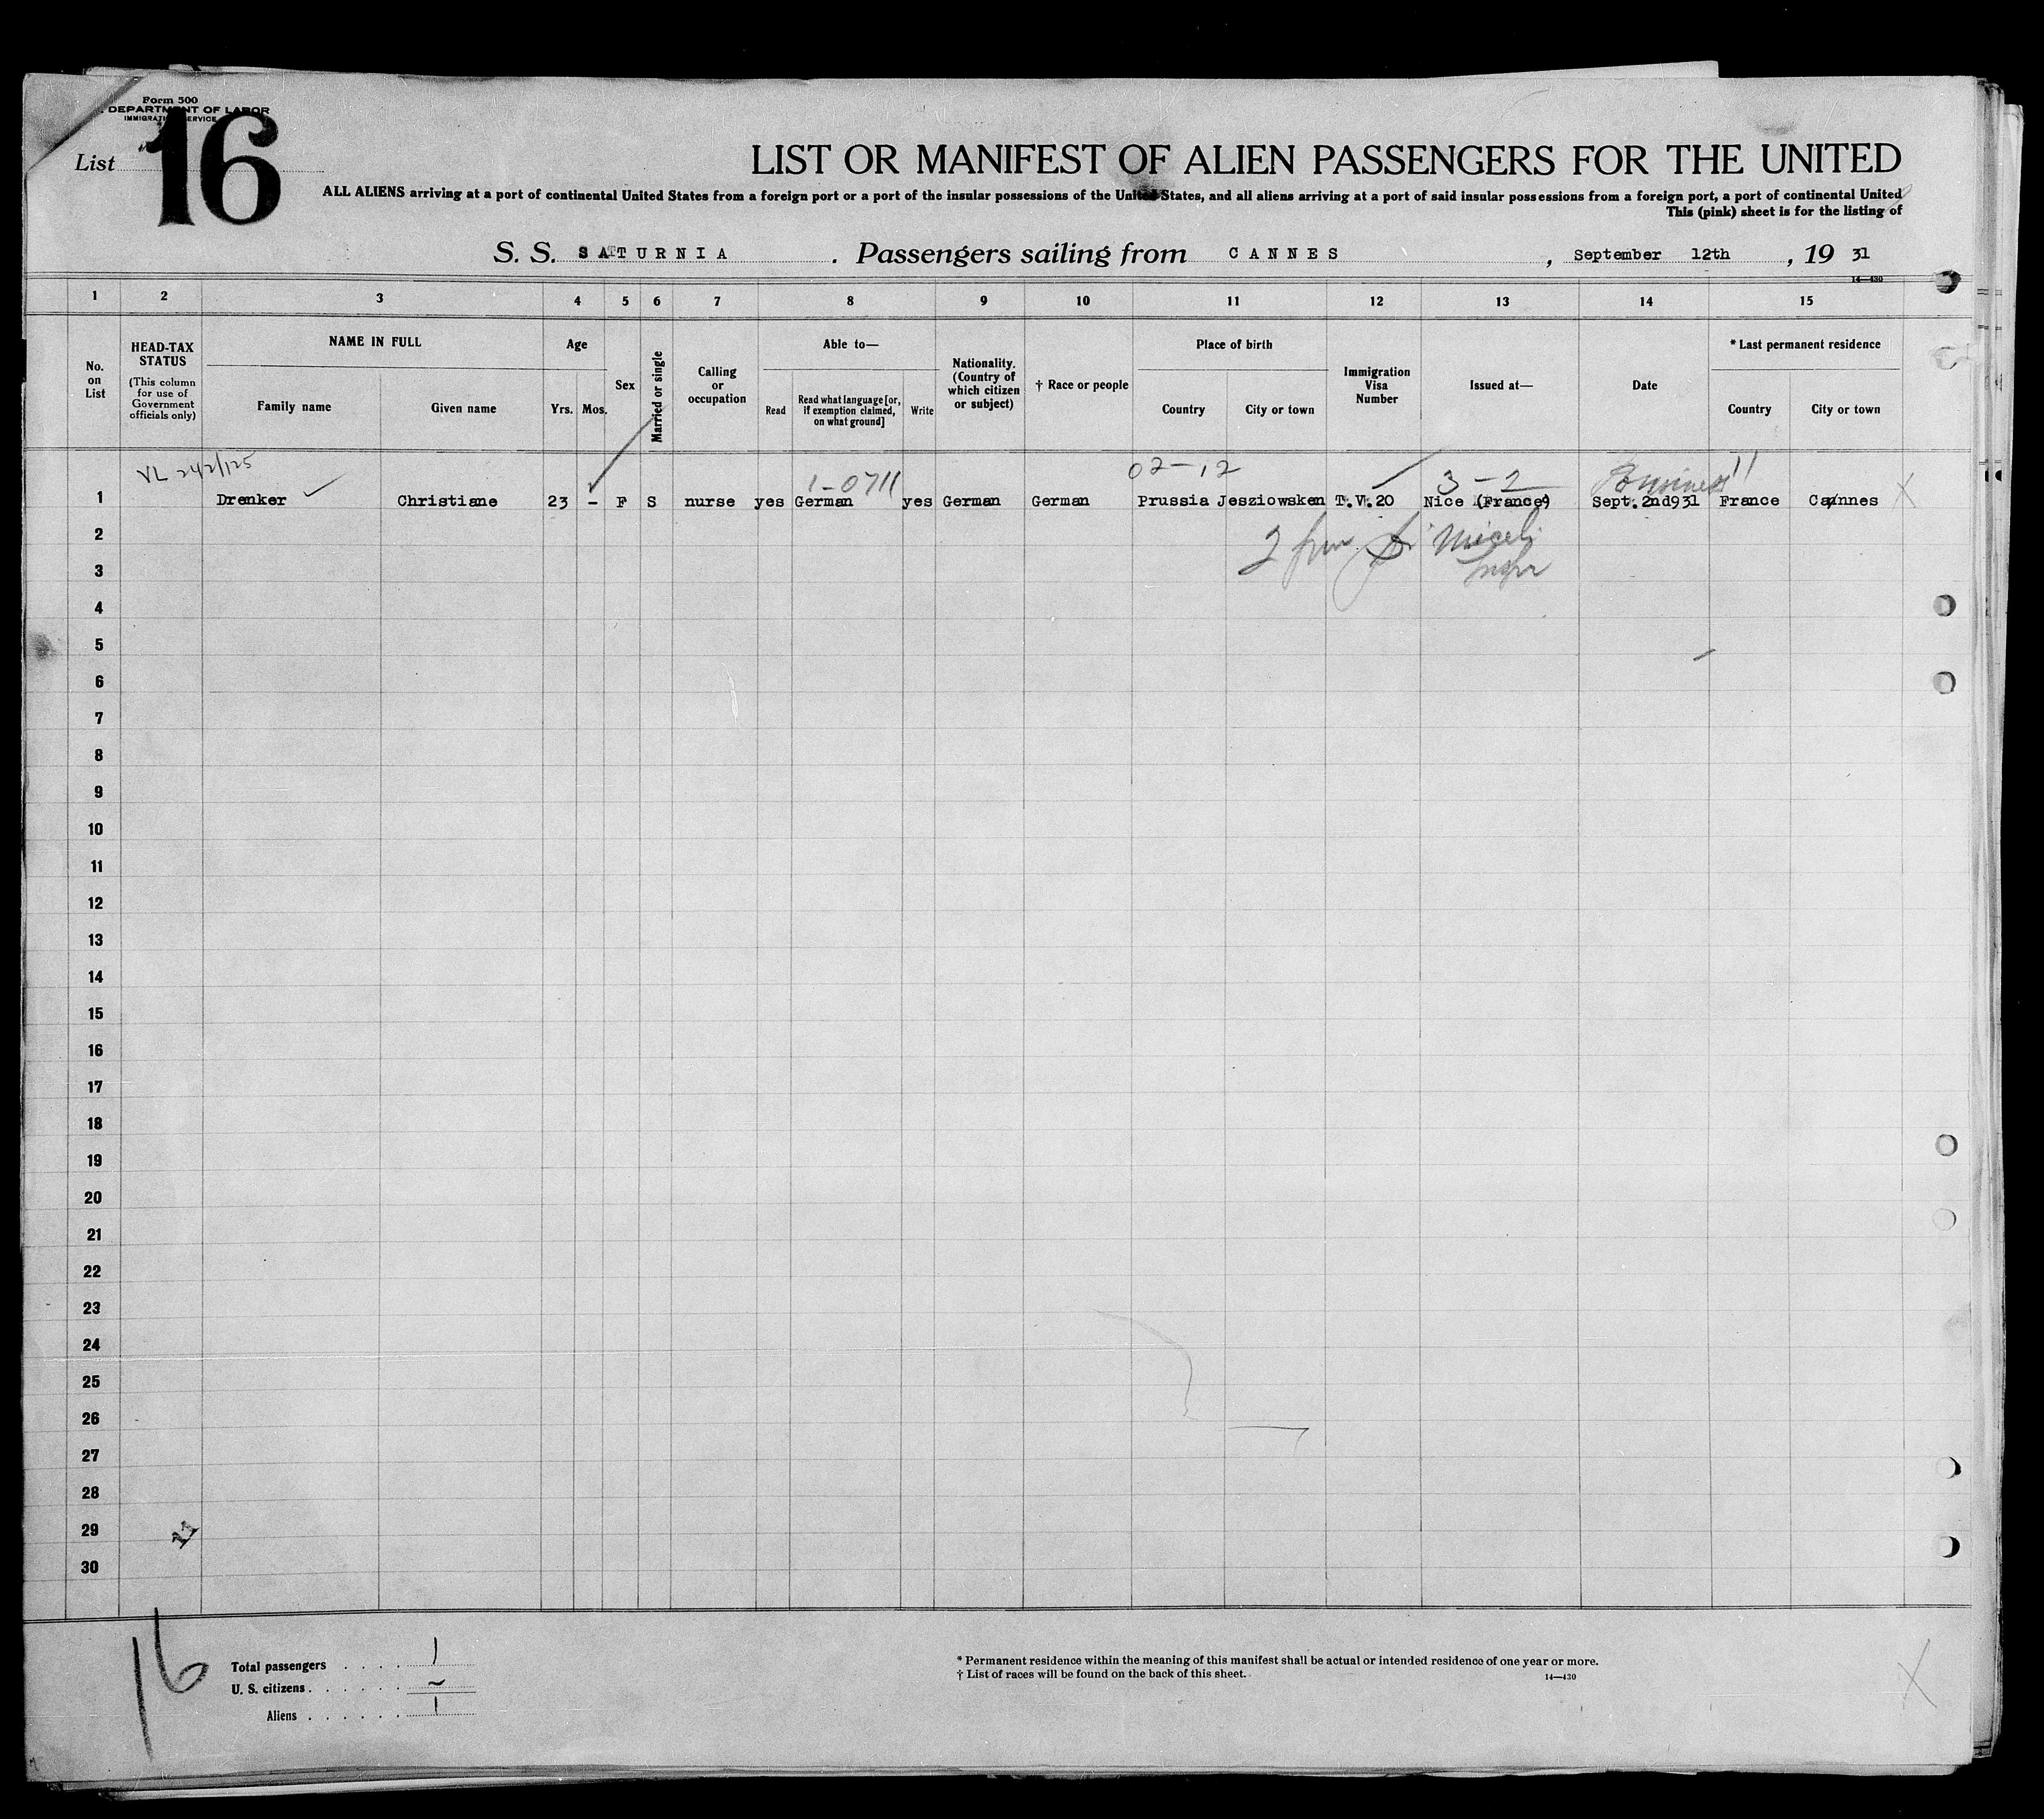 Form 500
DEPARTMENT OF LABOR
IMMIGRATION SERVICE
List 16
LIST OR MANIFEST OF ALIEN PASSENGERS FOR THE UNITED
ALL ALIENS arriving at a port of continental United States from a foreign port or a port of the insular possessions of the United States, and all aliens arriving at a port of said insular possessions from a foreign port, a port of continental United
This (pink) sheet is for the listing of
S. S. SATURNIA . Passengers sailing from CANNES , September 12th , 19 31
14—430
1 2 3 4 5 6 7 8 9 10 11 12 13 14 15
No. on List
HEAD-TAX STATUS
(This column for use of Government officials only)
NAME IN FULL
Family name Given name
Age
Yrs. Mos.
Sex
Married or single
Calling or occupation
Able to—
Read
Read what language [or, if exemption claimed, on what ground]
Write
Nationality. (Country of which citizen or subject)
† Race or people
Place of birth
Country City or town
Immigration Visa Number
Issued at—
Date
* Last permanent residence
Country City or town
VL 242/125 1-0711 02-12 3-2 Business
1 Drenker Christiane 23 - F S nurse yes German yes German German Prussia Jesziowsken T.V.20 Nice (France) Sept.2nd931 France Cannes
2
3
4
5
6
7
8
9
10
11
12
13
14
15
16
17
18
19
20
21
22
23
24
25
26
27
28
29
30
16
Total passengers . . . . 1
U. S. citizens . . . . . . ~
Aliens . . . . . . 1
* Permanent residence within the meaning of this manifest shall be actual or intended residence of one year or more.
† List of races will be found on the back of this sheet.
14—430